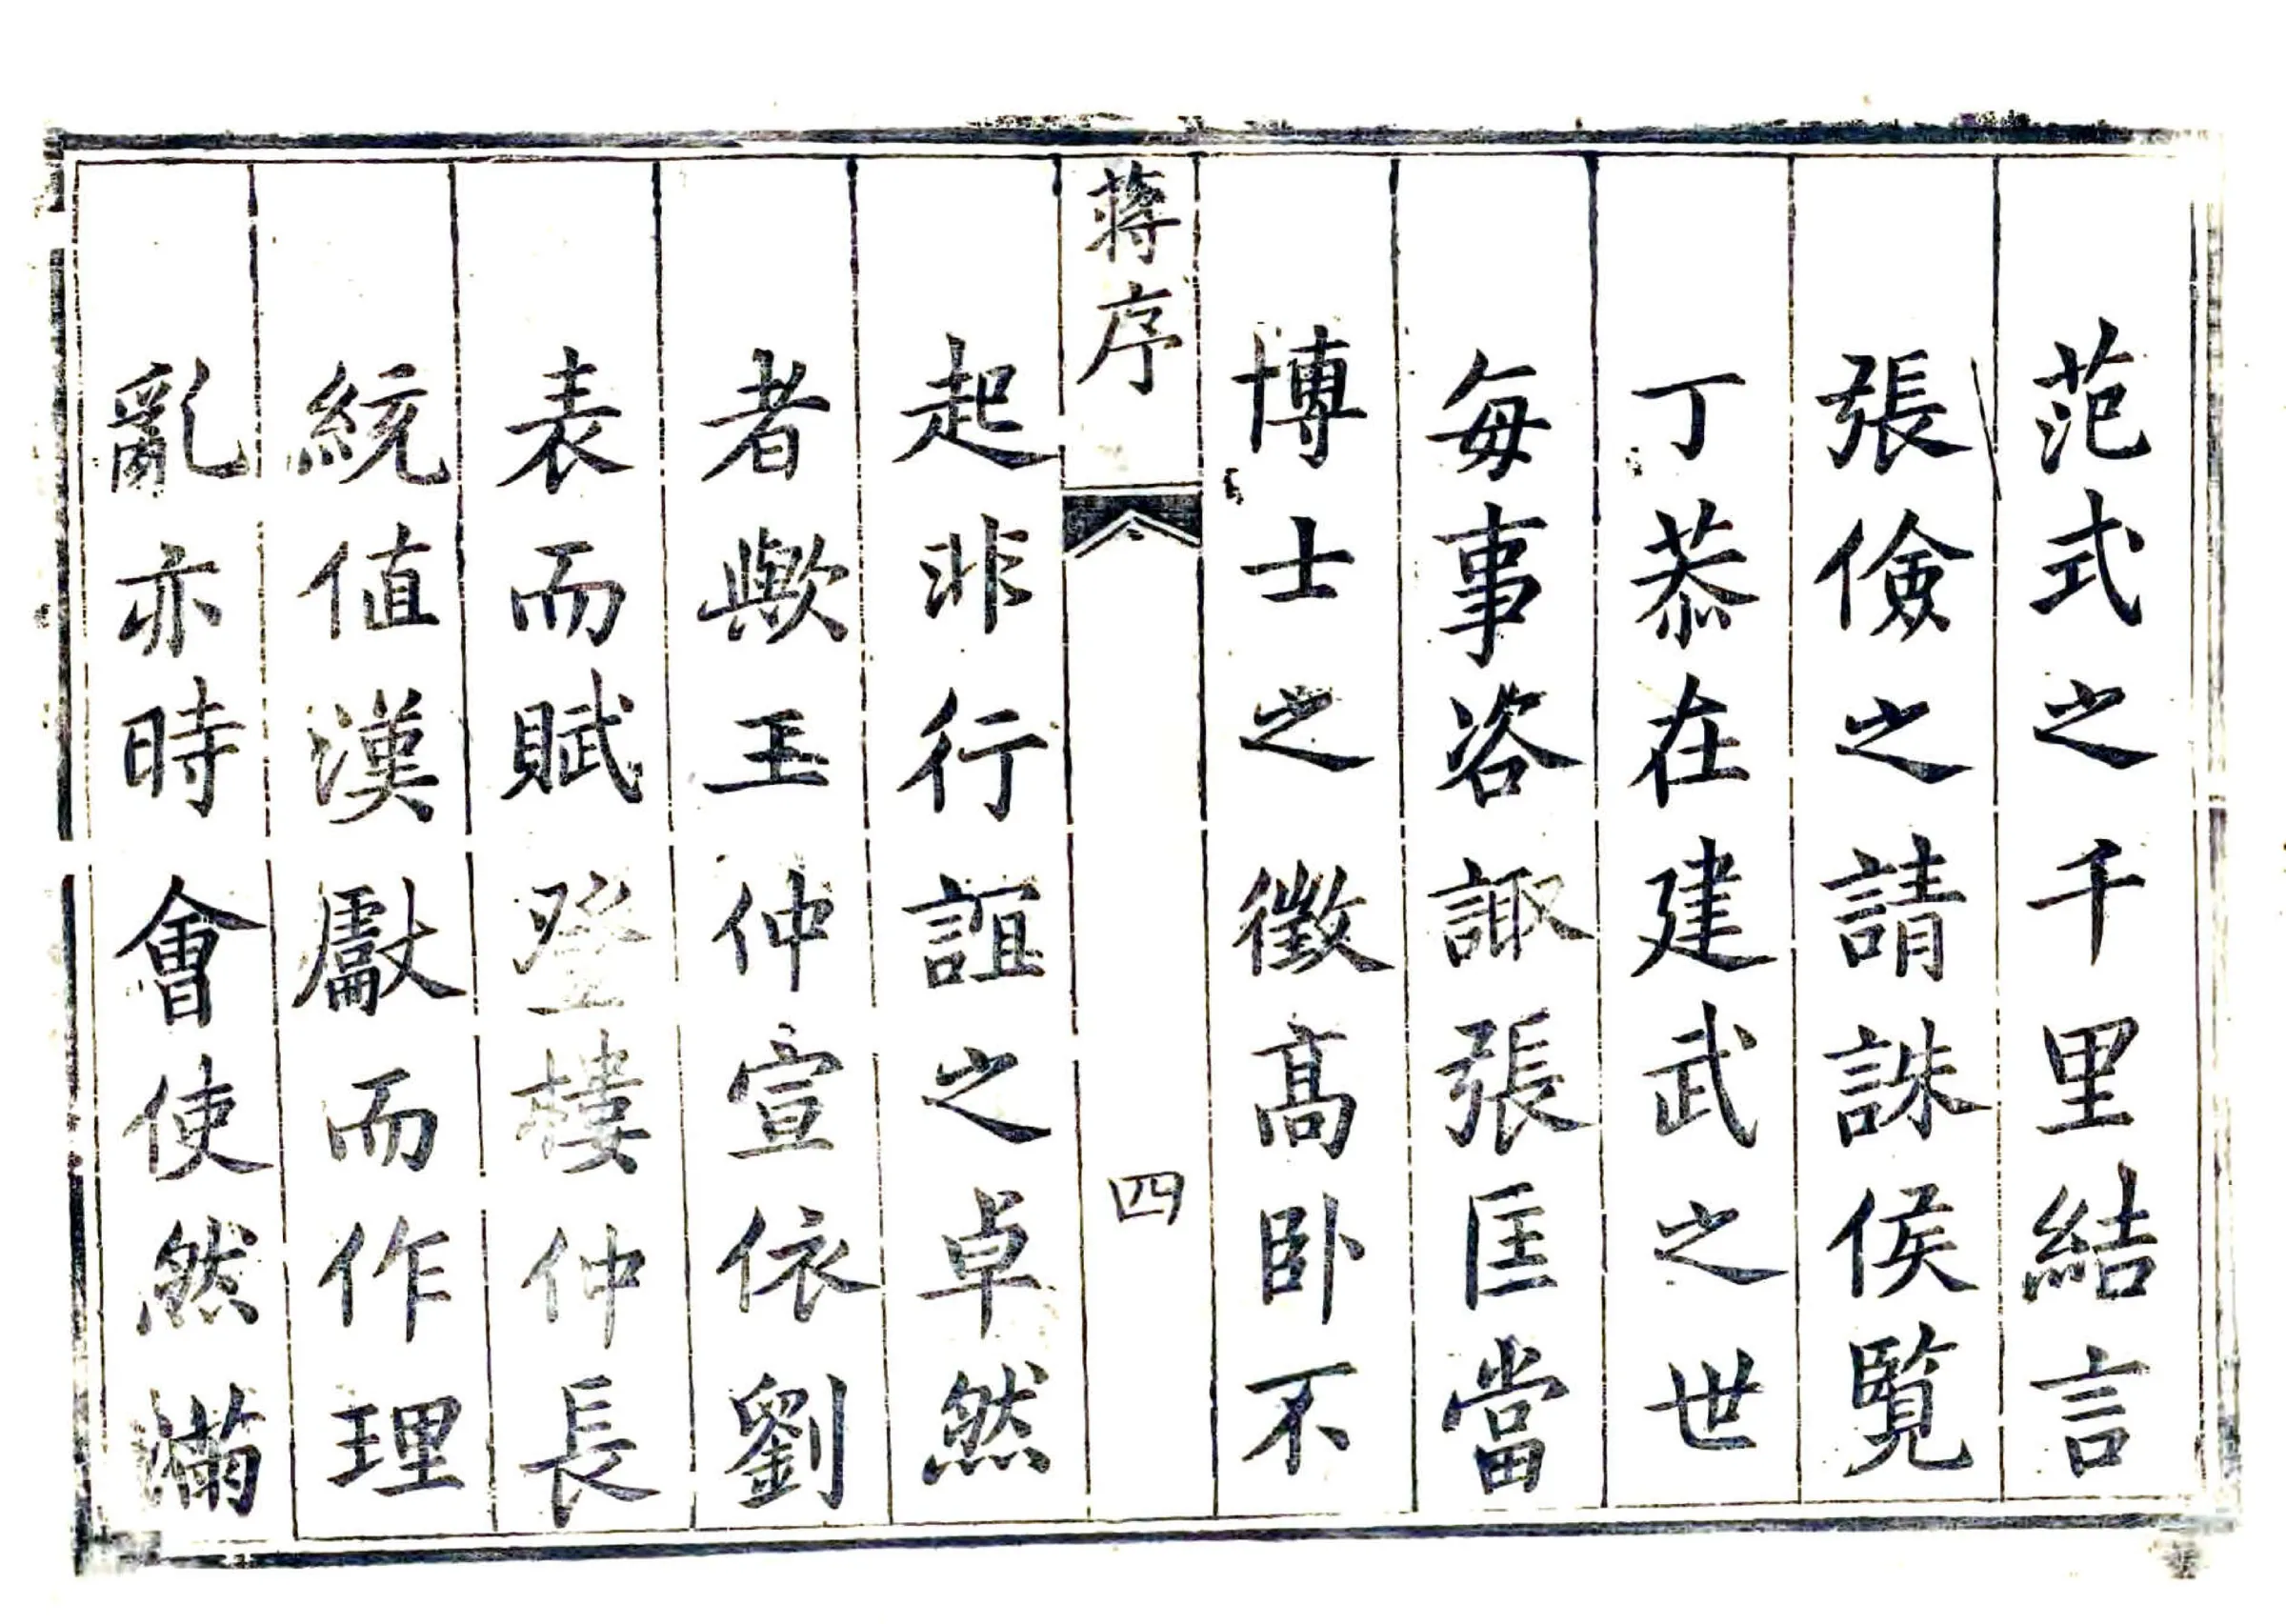 范式之千里結言
張儉之請誅侯覧
丁恭在建武之世
每事咨諏張匡當
博士之徵高卧不
蔣序
四
起非行誼之卓然
者歟王仲宣依劉
表而賦登樓仲長
統值漢獻而作理
亂亦時會使然滿